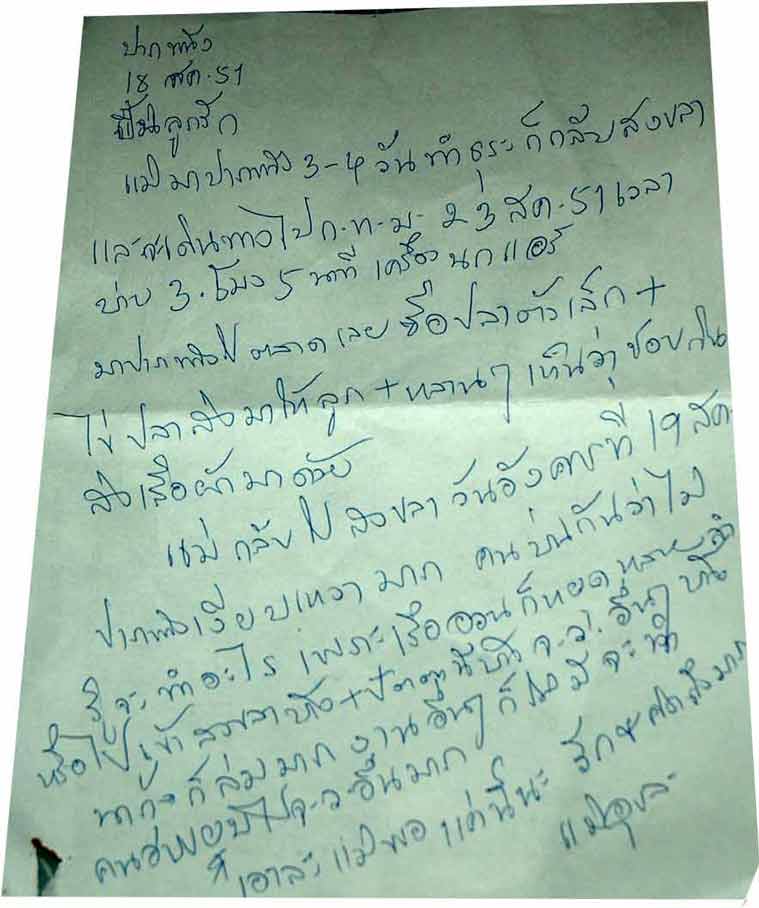 ปากพนัง
18 สค. 51
ปั้นลูกรัก
แม่มาปากพนัง 3-4 วัน ทำธุระ ก็กลับสงขลา
และจะเดินทางไป ก.ท.ม. 23 สค. 51 เวลา
บ่าย 3 โมง 5 นาที เครื่อง นกแอร์
มาปากพนังไปตลาด เลยซื้อปลาตัวเล็ก +
ไข่ปลาส่งมาให้ลูก + หลานๆ เห็นว่าชอบกัน
ส่งเสื้อผ้ามาด้วย
แม่กลับไปสงขลา วันอังคารที่ 19 สค.
ปากพนังเงียบเหงามาก คนบ่นกันว่าไม่
รู้จะทำอะไร เพราะเรืออวนก็หยุดหลายลำ
หรือไปเข้าสงขลาบ้าง + ปัตตานีบ้าง จ.ว. อื่นๆ บ้าง
นากุ้งก็ล่มมาก งานอื่นๆ ก็ไม่มีจะทำ
คนอพยบไปจ.ว อื่นมาก
เอาละแม่พอแค่นี้นะ รัก + คิดถึงมาก